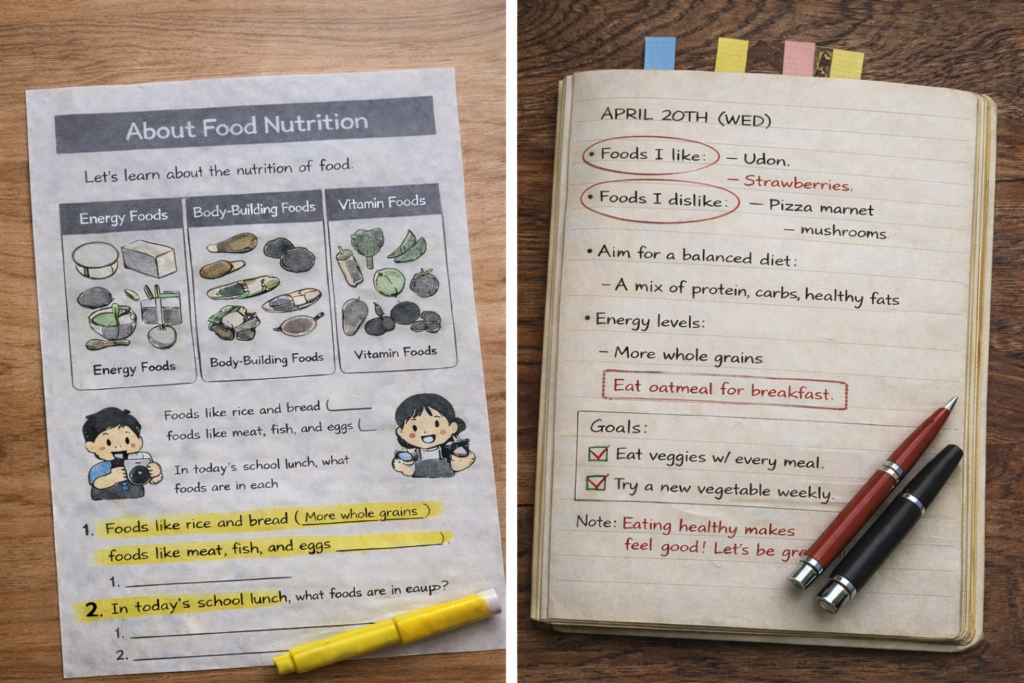 About Food Nutrition
Let's learn about the nutrition of food.
Energy Foods
Body-Building Foods
Vitamin Foods
Energy Foods
Body-Building Foods
Vitamin Foods
Foods like rice and bread (____
foods like meat, fish, and eggs (__
In today's school lunch, what
foods are in each
1. Foods like rice and bread ( More whole grains )
foods like meat, fish, and eggs ____________)
1. ____________
2. In today's school lunch, what foods are in
1. ____________
2. ____________
APRIL 20TH (WED)
• Foods I like: – Udon.
– Strawberries.
• Foods I dislike: – Pizza marnet
– mushrooms
• Aim for a balanced diet:
– A mix of protein, carbs, healthy fats
• Energy levels:
– More whole grains
Eat oatmeal for breakfast.
Goals:
☑ Eat veggies w/ every meal.
☑ Try a new vegetable weekly.
Note: Eating healthy makes
feel good! Let's be